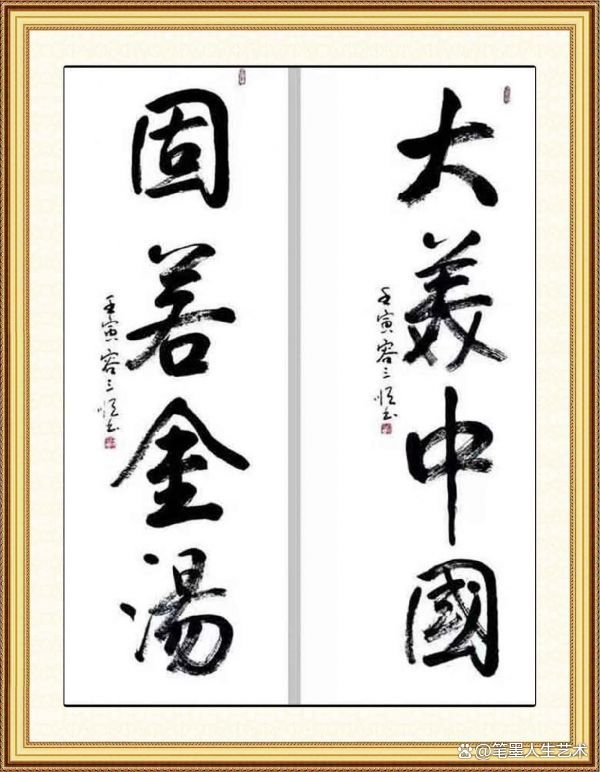 大美中國
壬寅容三恒书
固若金湯
壬寅容三恒书
@笔墨人生艺术